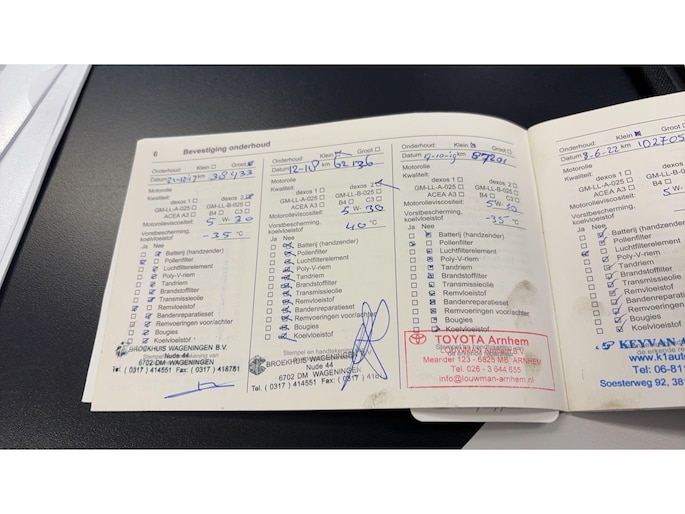 6 Bevestiging onderhoud
Onderhoud: Klein Groot
Datum km 38433
Motorolie
Kwaliteit: dexos 1 dexos 2
GM-LL-A-025 GM-LL-B-025
ACEA A3 B4 C3
Motorolieviscositeit: 5 W- 30
Vorstbescherming,
koelvloeistof -35 °C
Ja Nee
Batterij (handzender)
Pollenfilter
Luchtfilterelement
Poly-V-riem
Tandriem
Brandstoffilter
Transmissieolie
Remvloeistof
Bandenreparatieset
Remvoeringen voor/achter
Bougies
Koelvloeistof
BROEKHUIS WAGENINGEN B.V.
Nude 44
6702 DM WAGENINGEN
Tel. ( 0317 ) 414551 Fax: ( 0317 ) 418781
Onderhoud: Klein Groot
Datum 12-18 km 62136
Motorolie
Kwaliteit: dexos 1 dexos 2
GM-LL-A-025 GM-LL-B-025
ACEA A3 B4 C3
Motorolieviscositeit: 5 W- 30
Vorstbescherming,
koelvloeistof 40 °C
Ja Nee
Batterij (handzender)
Pollenfilter
Luchtfilterelement
Poly-V-riem
Tandriem
Brandstoffilter
Transmissieolie
Remvloeistof
Bandenreparatieset
Remvoeringen voor/achter
Bougies
Koelvloeistof
Stempel en handtekening van
BROEKHUIS WAGENINGEN
Nude 44
6702 DM WAGENINGEN
Tel. ( 0317 ) 414551 Fax: ( 0317 )
Onderhoud: Klein Groot
Datum 17-10-19 km 87201
Motorolie
Kwaliteit: dexos 1 dexos 2
GM-LL-A-025 GM-LL-B-025
ACEA A3 B4 C3
Motorolieviscositeit: 5 W- 30
Vorstbescherming,
koelvloeistof -35 °C
Ja Nee
Batterij (handzender)
Pollenfilter
Luchtfilterelement
Poly-V-riem
Tandriem
Brandstoffilter
Transmissieolie
Remvloeistof
Bandenreparatieset
Remvoeringen voor/achter
Bougies
Koelvloeistof
TOYOTA Arnhem
Meander 123 - 6825 MB ARNHEM
Tel. 026 - 3 644 655
info@louwman-arnhem.nl
Onderhoud: Klein Groot
Datum 8-6-22 km 102705
Motorolie
Kwaliteit: dexos 1
GM-LL-A-025
ACEA A3 B4
Motorolieviscositeit: 5
Vorstbescherming,
koelvloeistof
Ja Nee
Batterij (handzender)
Pollenfilter
Luchtfilterelement
Poly-V-riem
Tandriem
Brandstoffilter
Transmissieolie
Remvloeistof
Bandenreparatie
Remvoeringen
Bougies
Koelvloeistof
KEYVAN
www.k1aut
Tel: 06-81
Soesterweg 92, 38